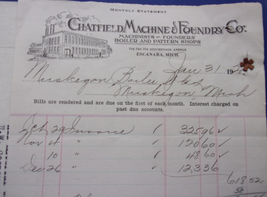 MONTHLY STATEMENT
CHATFIELD MACHINE & FOUNDRY CO.
MACHINISTS FOUNDERS
BOILER AND PATTERN SHOPS
ESCANABA, MICH. Jan 31 19
M Muskegon Boiler Works
Muskegon Mich
Bills are rendered and are due on the first of each month. Interest charged on
past due accounts.
Oct 29 Invoice 325 96
Nov
10 48 60
Dec 26 123 36
618 02